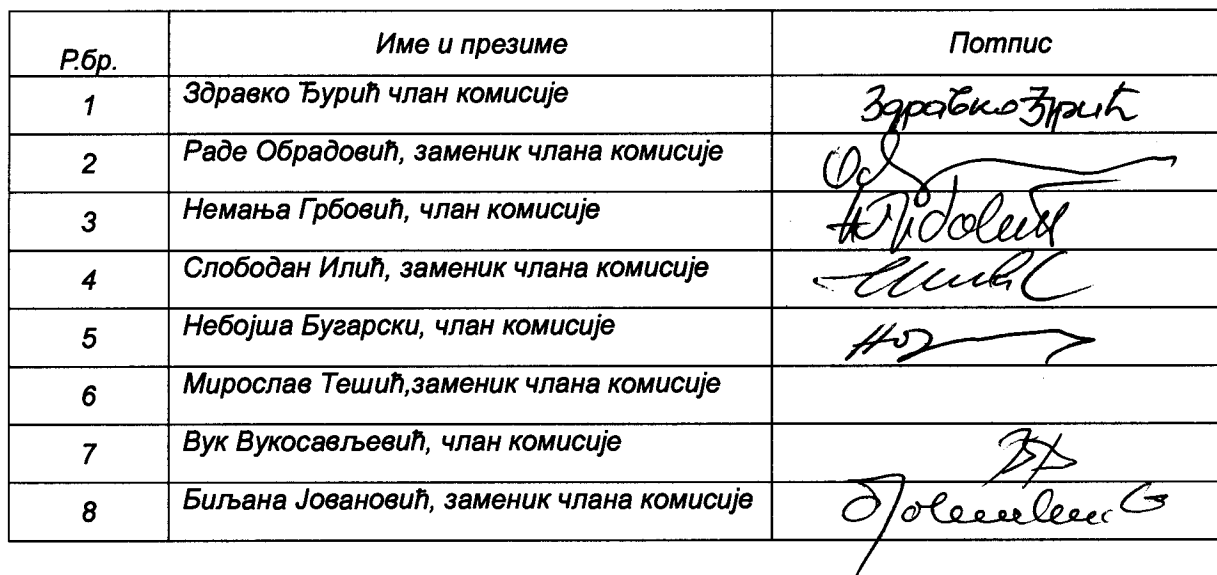 Р.бр. Име и презиме Потпис
1 Здравко Ђурић члан комисије Здравко Ђурић
2 Раде Обрадовић, заменик члана комисије
3 Немања Грбовић, члан комисије
4 Слободан Илић, заменик члана комисије
5 Небојша Бугарски, члан комисије
6 Мирослав Тешић,заменик члана комисије
7 Вук Вукосављевић, члан комисије
8 Биљана Јовановић, заменик члана комисије